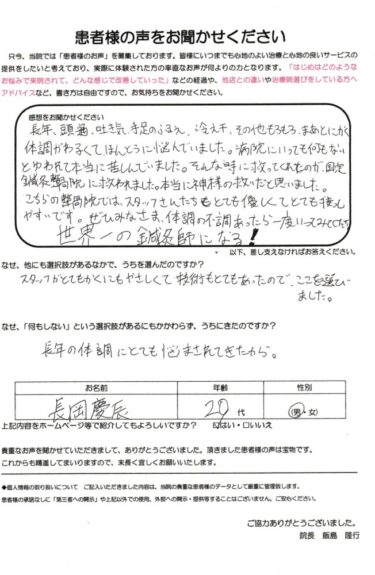 患者様の声をお聞かせください
只今、当院では「患者様のお声」を募集しております。皆様にいつまでも心地のよい治療と心地の良いサービスの
提供をしたいと考えており、実際に体験された方の率直なお声が何よりの力となります。「はじめはどのような
お悩みで来院されて、どんな感じで改善していった」などの経過や、他店との違いや治療院選びをしている方へ
アドバイスなど、書き方は自由ですので、お気持ちをお聞かせください。
感想をお聞かせください
長年、頭痛、吐き気、手足のふるえ、冷え下、その他もろもろ、まあとにかく
体調がわるくてほんとうに悩んでいました。病院にいっても何もない
といわれて本当に苦しんでいました。そんな時に救ってくれたのが、
鍼灸整骨院に救われました。本当に神様の救いだと思いました。
こちらの整骨院では、スタッフさんたちもとても優しくてとても接し
やすいです。ぜひみなさま、体調の不調あったら一度いってみてください
世界一の鍼灸師になる!
* 以下、差し支えなければお答えください。
なぜ、他にも選択肢があるなかで、うちを選んだのですか?
スタッフがとてもかくにもやさしくて技術もとてもあったので、ここを選び
ました。
なぜ、「何もしない」という選択肢があるにもかかわらず、うちにきたのですか?
長年の体調にとても悩まされてきたから。
お名前 年齢 性別
長岡慶辰 20代 男・女
上記内容をホームページ等で紹介してもよろしいですか? ☑はい・□いいえ
貴重なお声を聞かせていただきまして、ありがとうございました。頂きました患者様の声は宝物です。
これからも精進してまいりますので、末長く宜しくお願いいたします。
◆個人情報の取り扱いについて ご記入いただきました内容は、当院の貴重な患者様のデータとして厳重に管理致します。
患者様の承諾なしに「第三者への開示」や上記以外での使用、外部への開示・提供等することはございません。ご安心ください。
ご協力ありがとうございました。
院長 飯島 隆行